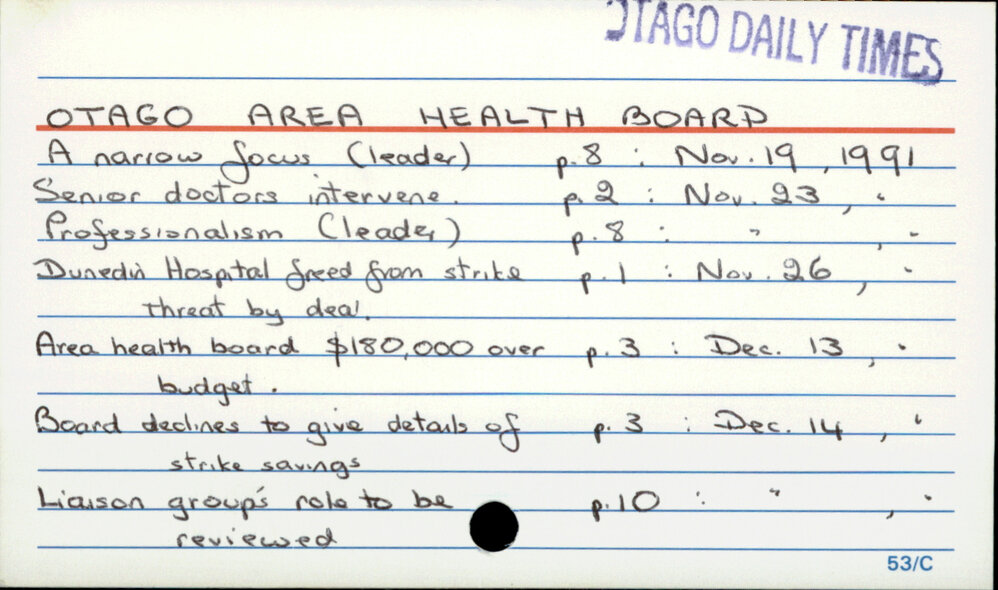 OTAGO DAILY TIMES
OTAGO AREA HEALTH BOARD
A narrow focus (leader) p.8 : Nov. 19, 1991
Senior doctors intervene. p.2 : Nov. 23, "
Professionalism (leader) p.8 : " , "
Dunedin Hospital freed from strike p.1 : Nov. 26, "
threat by deal.
Area health board $180,000 over p.3 : Dec. 13, "
budget.
Board declines to give details of p.3 : Dec. 14, "
strike savings
Liaison group's role to be p.10 : " , "
reviewed
53/C